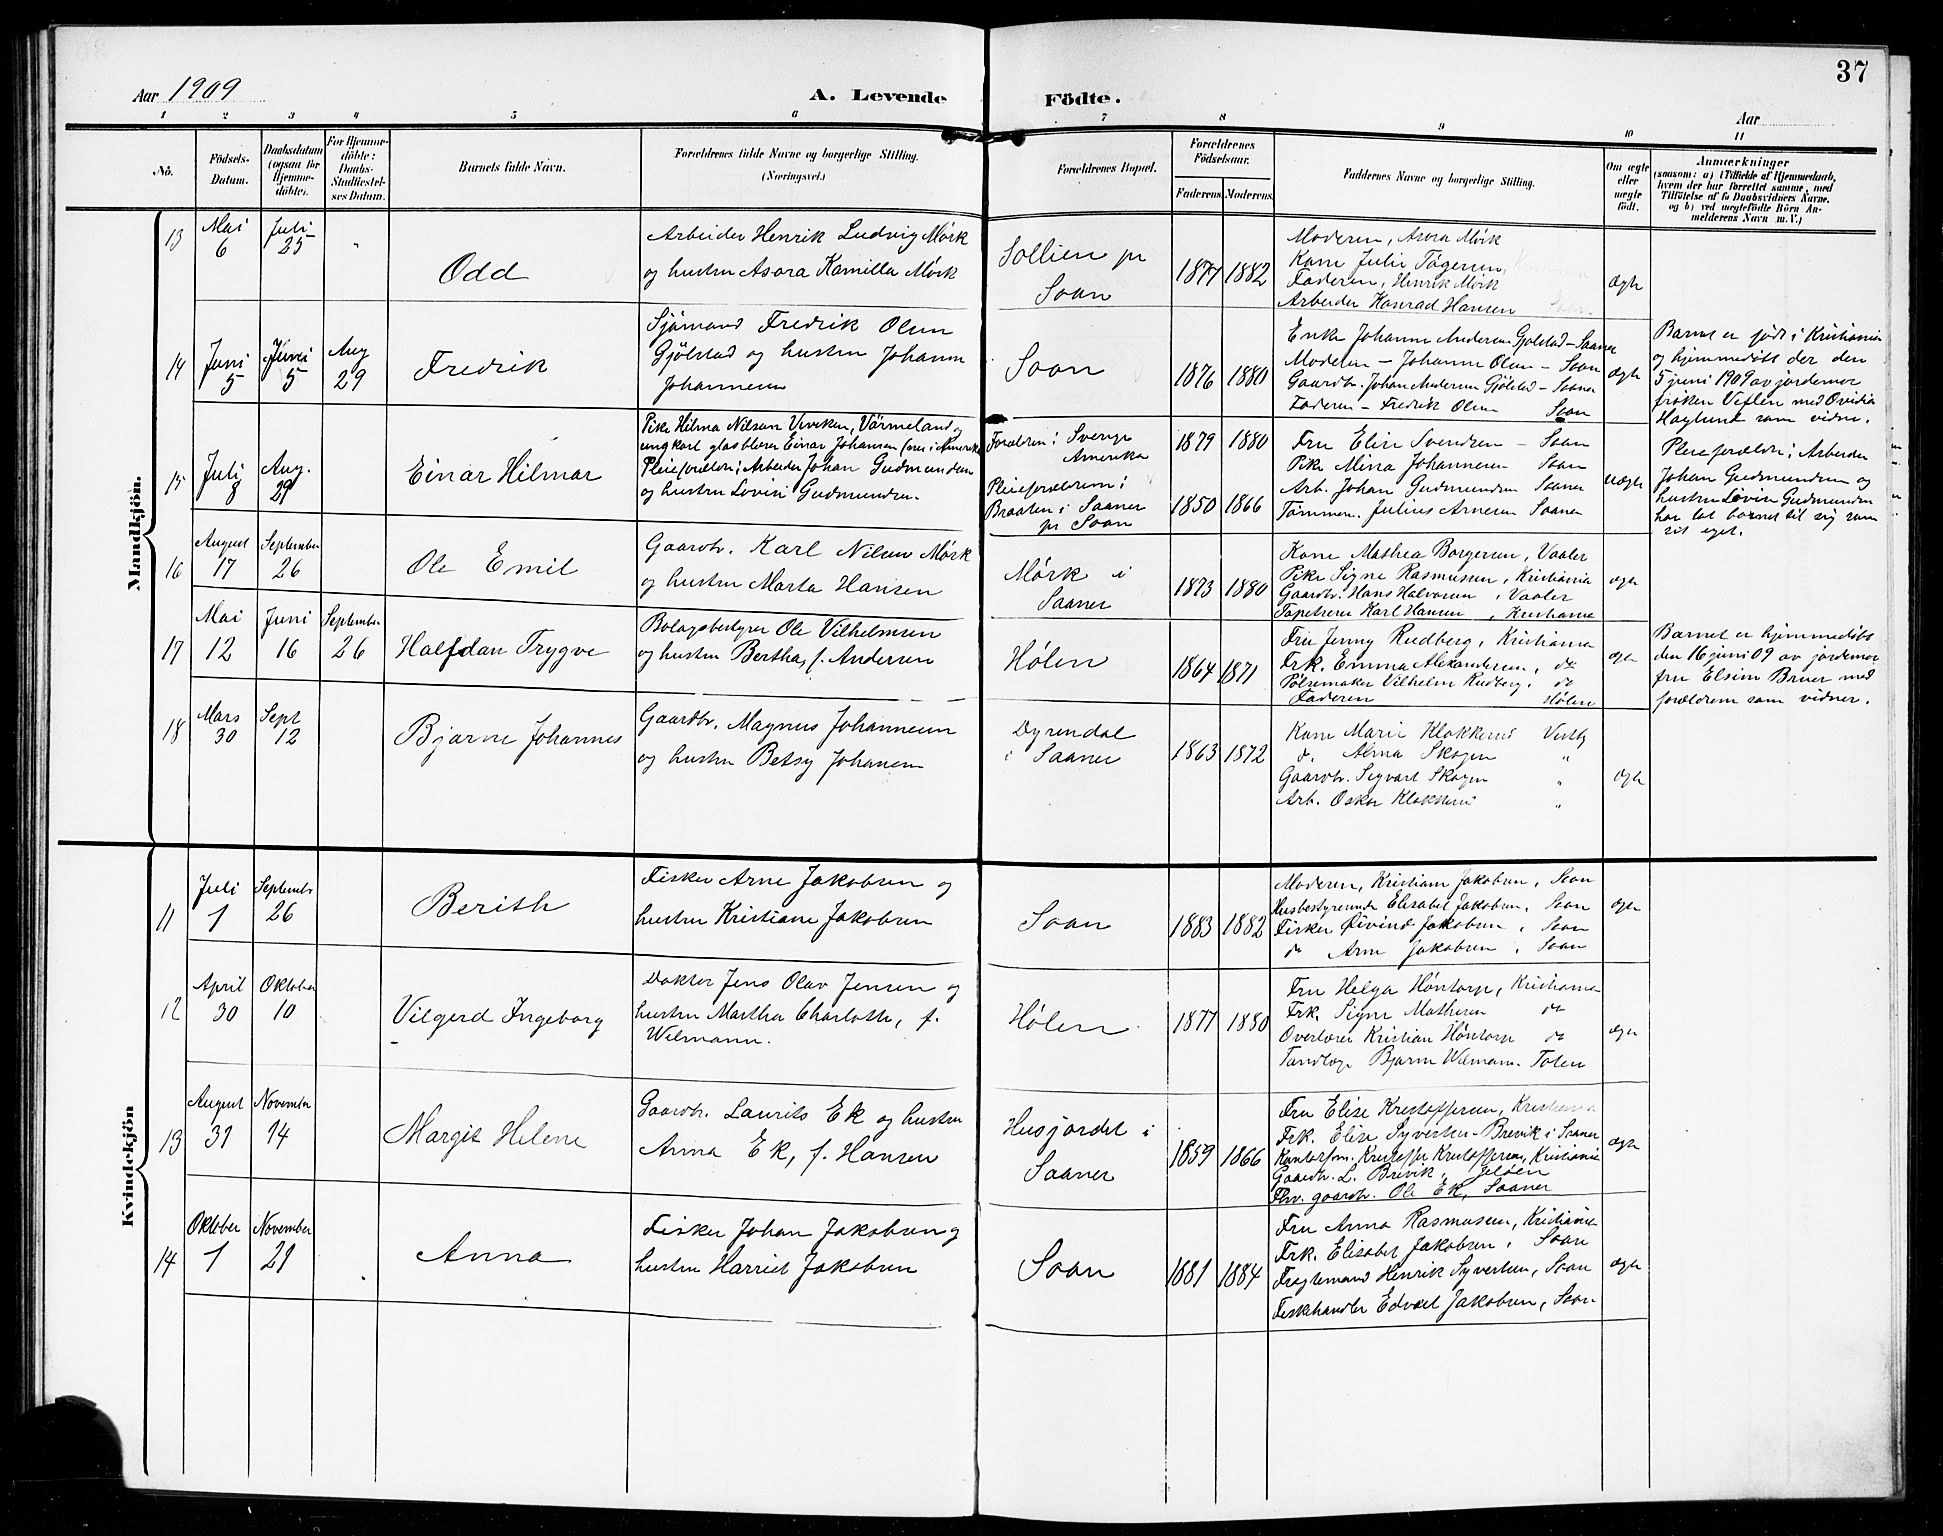 37
Aar 1909
A. Levende Födte.
Aar
1 2 3 4 5 6 7 8 9 10 11
No.
Födsels-Datum.
Daabsdatum (ogsaa for Hjemme-döbte).
For Hjemme-döbte: Daabs-Stadfæstel-ses Datum.
Barnets fulde Navn.
Forældrenes fulde Navne og borgerlige Stilling.
(Næringsvei.)
Forældrenes Bopæl.
Forældrenes Födselsaar.
Faderens. Moderens.
Faddernes Navne og borgerlige Stilling.
Om ægte eller uægte födt.
Anmærkninger
(saasom: a) i Tilfælde af Hjemmedaab,
hvem der har forrettet samme, med
Tilföielse af to Daabsvidners Navne.
og b) ved uægtefödte Börn An-
melderens Navn m. V.)
Mandkjön.
13
Mai 6
Juli 25
"
Odd
Arbeider Henrik Ludvig Mørk
og hustru Asora Kamilla Mørk
Sollien pr
Soon
1877 1882
Moderen, Asora Mørk
Kone Julie Tøgersen,
Faderen, Henrik Mørk
Arbeider Konrad Hansen
ægte
14
Juni 5
Juni 5
Aug 29
Fredrik
Sjømand Fredrik Olsen
Gjølstad og hustru Johanne
Johannesen
Soon
1876 1880
Enke Johanne Andersen Gjølstad - Saaner
Moderen - Johanne Olsen - Soon
Gaardbr. Johan Andersen Gjølstad - Saaner
Faderen - Fredrik Olsen Soon
ægte
Barnet er født i Kristiania
og hjemmedøbt der den
5 juni 1909 av jordemor
frøken Veflen med Ovidia
Haglund som vidne.
15
Juli 8
Aug. 29
Einar Hilmar
Pike Hilma Nilsen Viveken, Värmeland og
ungkarl glasblæser Einar Johansen før i Amerika
Pleieforældre: Arbeider Johan Gudmundsen
og hustru Lovise Gudmundsen.
Forældren: Sverige
Amerika
Pleieforældrene:
Braaten i Saaner
pr Soon
1879 1880
1850 1866
Fru Elise Svendsen - Soon
Pike Mina Johannesen Soon
Arb. Johan Gudmundsen Saaner
Tømmerm. Julius Arnesen Saaner
uægte
Pleieforældre: Arbeider
Johan Gudmundsen og
hustru Lovise Gudmundsen
har tat barnet til sig som
sit eget.
16
August 17
September 26
Ole Emil
Gaardbr. Karl Nilsen Mørk
og hustru Marta Hansen
Mørk i
Saaner
1873 1880
Kone Mathea Borgersen, Vaaler
Pike Signe Rasmussen, Kristiania
Gaardbr. Hans Halvorsen, Vaaler
Tapetserer Karl Hansen, Kristiania
ægte
17
Mai 12
Juni 16
September 26
Halfdan Trygve
Bolagsbestyrer Ole Vilhelmsen
og hustru Bertha, f. Andersen
Hølen
1864 1871
Fru Jenny Rudberg, Kristiania
Frk. Emma Alexandersen, do
Pølsemaker Vilhelm Rudberg, do
Faderen Hølen
ægte
Barnet er hjemmedøbt
den 16 juni 09 av jordemor
fru Elsine Bruer med
forældrene som vidner.
18
Mars 30
Sept 12
Bjarne Johannes
Gaardbr. Magnus Johannesen
og hustru Betsy Johansen
Dyrendal
i Saaner
1863 1872
Kone Marie Klokkerud Vestby
do Alma Skogen "
Gaardbr. Sigvart Skogen "
Arb. Oskar Klokkerud "
ægte
Kvindekjön
11
Juli 1
September 26
Berith
Fisker Arne Jakobsen og
hustru Kristiane Jakobsen
Soon
1883 1882
Moderen, Kristiane Jakobsen, Soon
Husbestyrerinde Elisabet Jakobsen, Soon
Fisker Øivind Jakobsen, Soon
do Arne Jakobsen, Soon
ægte
12
April 30
Oktober 10
Vilgerd Ingeborg
Doktor Jens Olav Jensen og
hustru Martha Charlotte, f.
Wilmann.
Hølen
1877 1880
Fru Helga Høntorp, Kristiania
Frk. Signe Mathesen do
Overlærer Kristian Høntorp do
Tandlæge Bjarne Wilmann. Toten
ægte
13
August 31
November 14
Margit Helene
Gaardbr. Laurits Ek og hustru
Anna Ek, f. Hansen
Husjordet i
Saaner
1859 1866
Fru Elise Kristoffersen, Kristiania
Frk. Elise Syvertsen - Brevik i Saaner
Kontorfm. Kristoffer Kristoffersen, Kristiania
Gaardbr. L. Brevik, Jeløen
Fhv. gaardbr. Ole Ek, Saaner
ægte
14
Oktober 1
November 21
Anna
Fisker Johan Jakobsen og
hustru Harriet Jakobsen
Soon
1881 1884
Fru Anna Rasmussen, Kristiania
Frk. Elisabet Jakobsen, Soon
Fragtemand Henrik Syvertsen, Soon
Fiskehandler Edvart Jakobsen, Soon
ægte